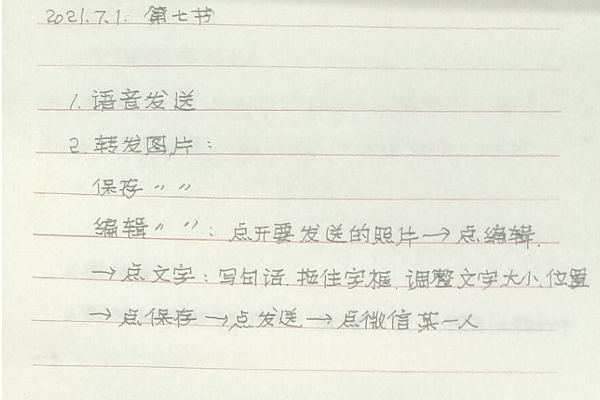 2021.7.1. 第七节
1. 语音发送
2. 转发图片:
保存 〃 〃
编辑〃 〃: 点开要发送的照片→点编辑.
→点文字: 写句话. 拉住字框. 调整文字大小.位置
→点保存→点发送→点微信某一人